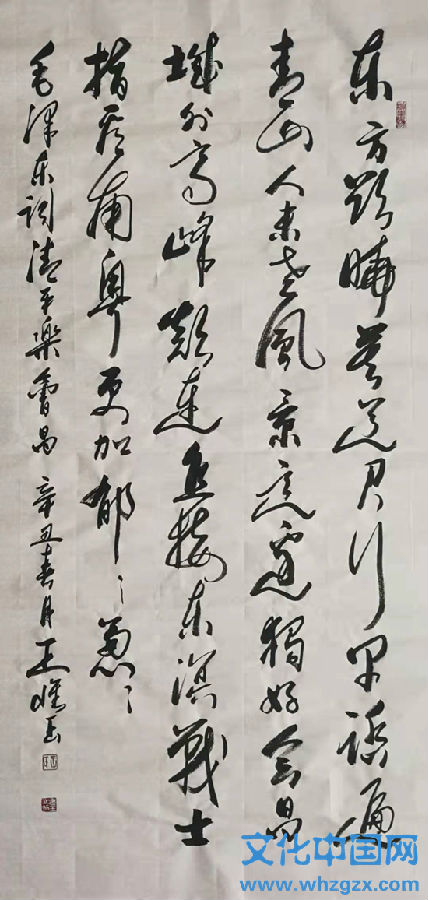 东方欲晓莫道君行早踏遍
青山人未老風景這邊獨好会昌
城外高峰颠连直接东溟战士
指看南粤更加郁〻葱〻
毛泽东词清平樂會昌 辛丑春月王
文化中国网
www.whzgzx.com